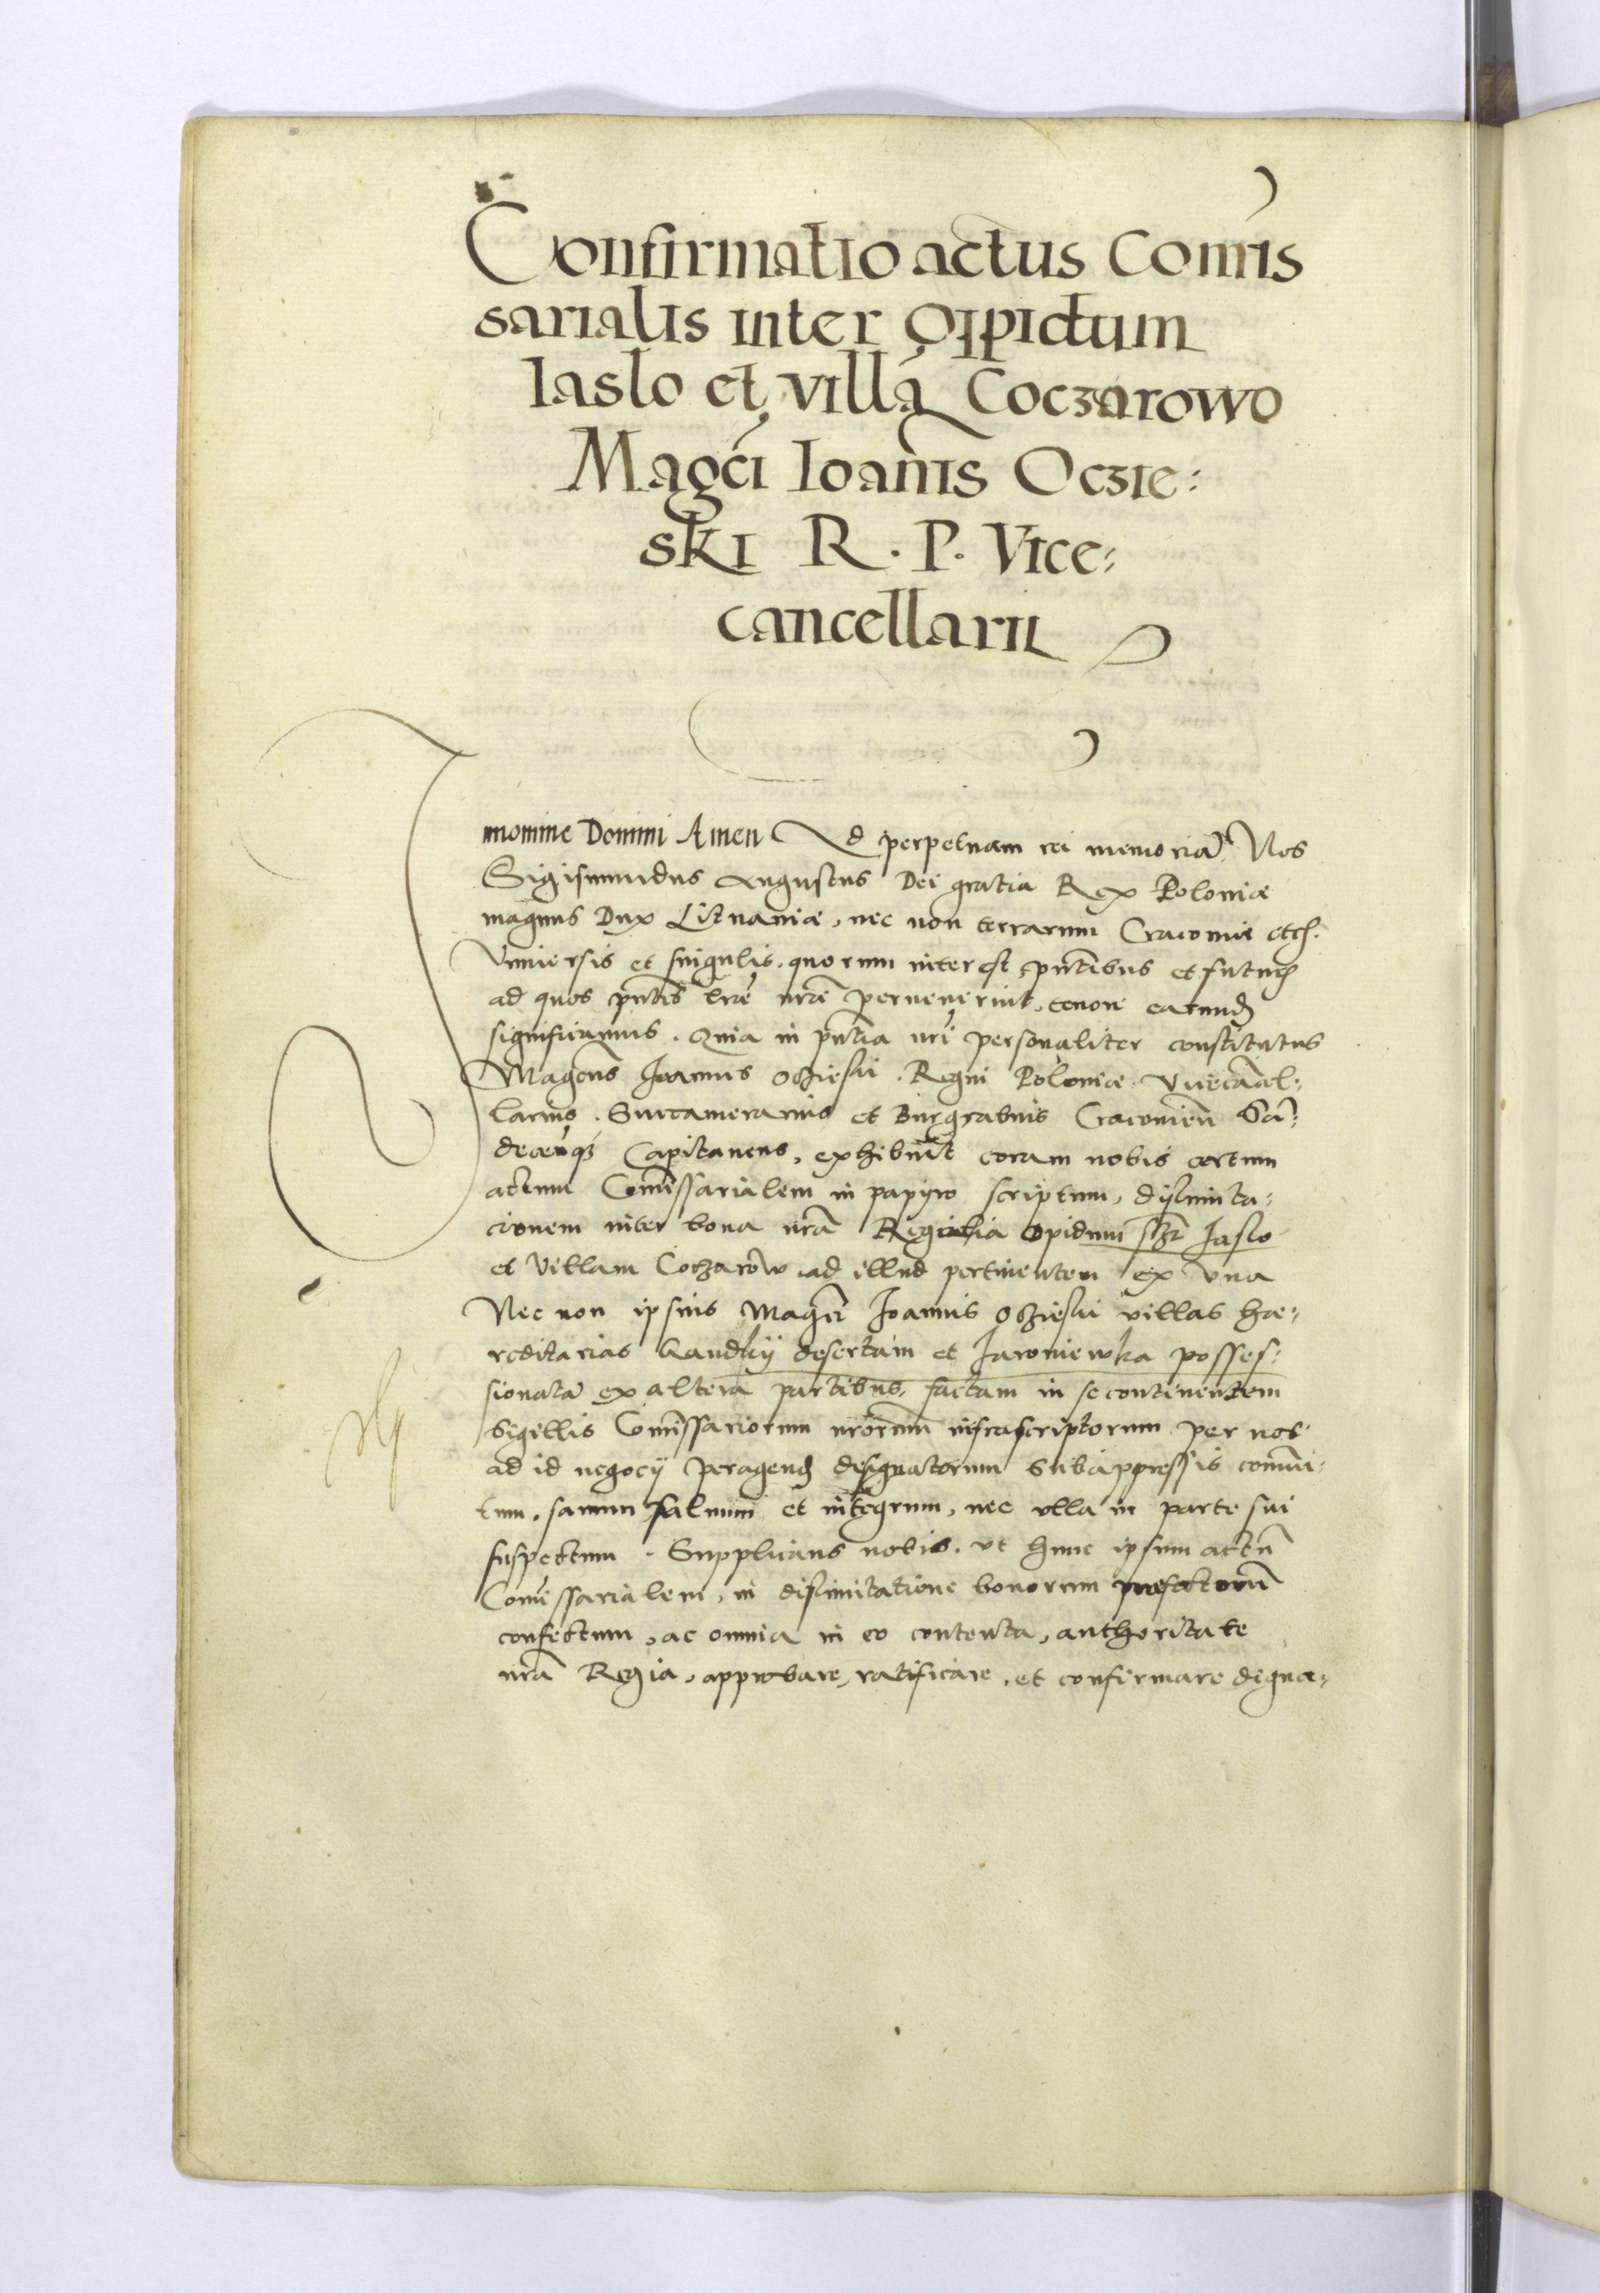 Confirmatio actus Comīs
sarialis inter Oppidum
Iaslo et villā Coczarowo
Magci Ioannis Oczie:
ski R. P. Vice:
cancellarii
In nomine Domini Amen Ad perpetuam rei memoriā Nos
Sigismundus Augustus Dei gratia Rex Poloniæ
magnus Dux Lituaniæ, nec non terrarum Cracovie etc.
Universis et singulis, quorum interest, pntibus et futuris
ad quos pntes lrē nrē pervenerint, tenore earund
significamus. Quia in pntia nrī personaliter constitutus
Magcus Joannis Oczieski. Regni Poloniæ Vicecācel:
larius. Succamerarius et Burgrabius Cracovien Sā:
decenq Capitaneus, exhibuit coram nobis certum
actum Comissarialem in papyro scriptum, dislimita:
cionem inter bona nrā Regalia Opidum scz Jaslo
et Villam Coczarow ad illud pertinentem ex una
Nec non ipsius Magci Joannis Oczieski villas hæ:
reditarias Kandkij desertam et Jaroniewka posses:
sionatā ex altera partibus, factam in se continentem
Sigillis Comissariorum nrorum infrascriptorum per nos
ad id negocij peragend designatorum subappressis comuni:
tum, sanum salvum et integrum, nec ulla in parte sui
suspectum. Supplicans nobis, ut hunc ipsum actū
Comissarialem, in dislimitatione bonorum præfectorū
confectum, ac omnia in eo contenta, authoritate
nrā Regia, approbare, ratificare, et confirmare digna: